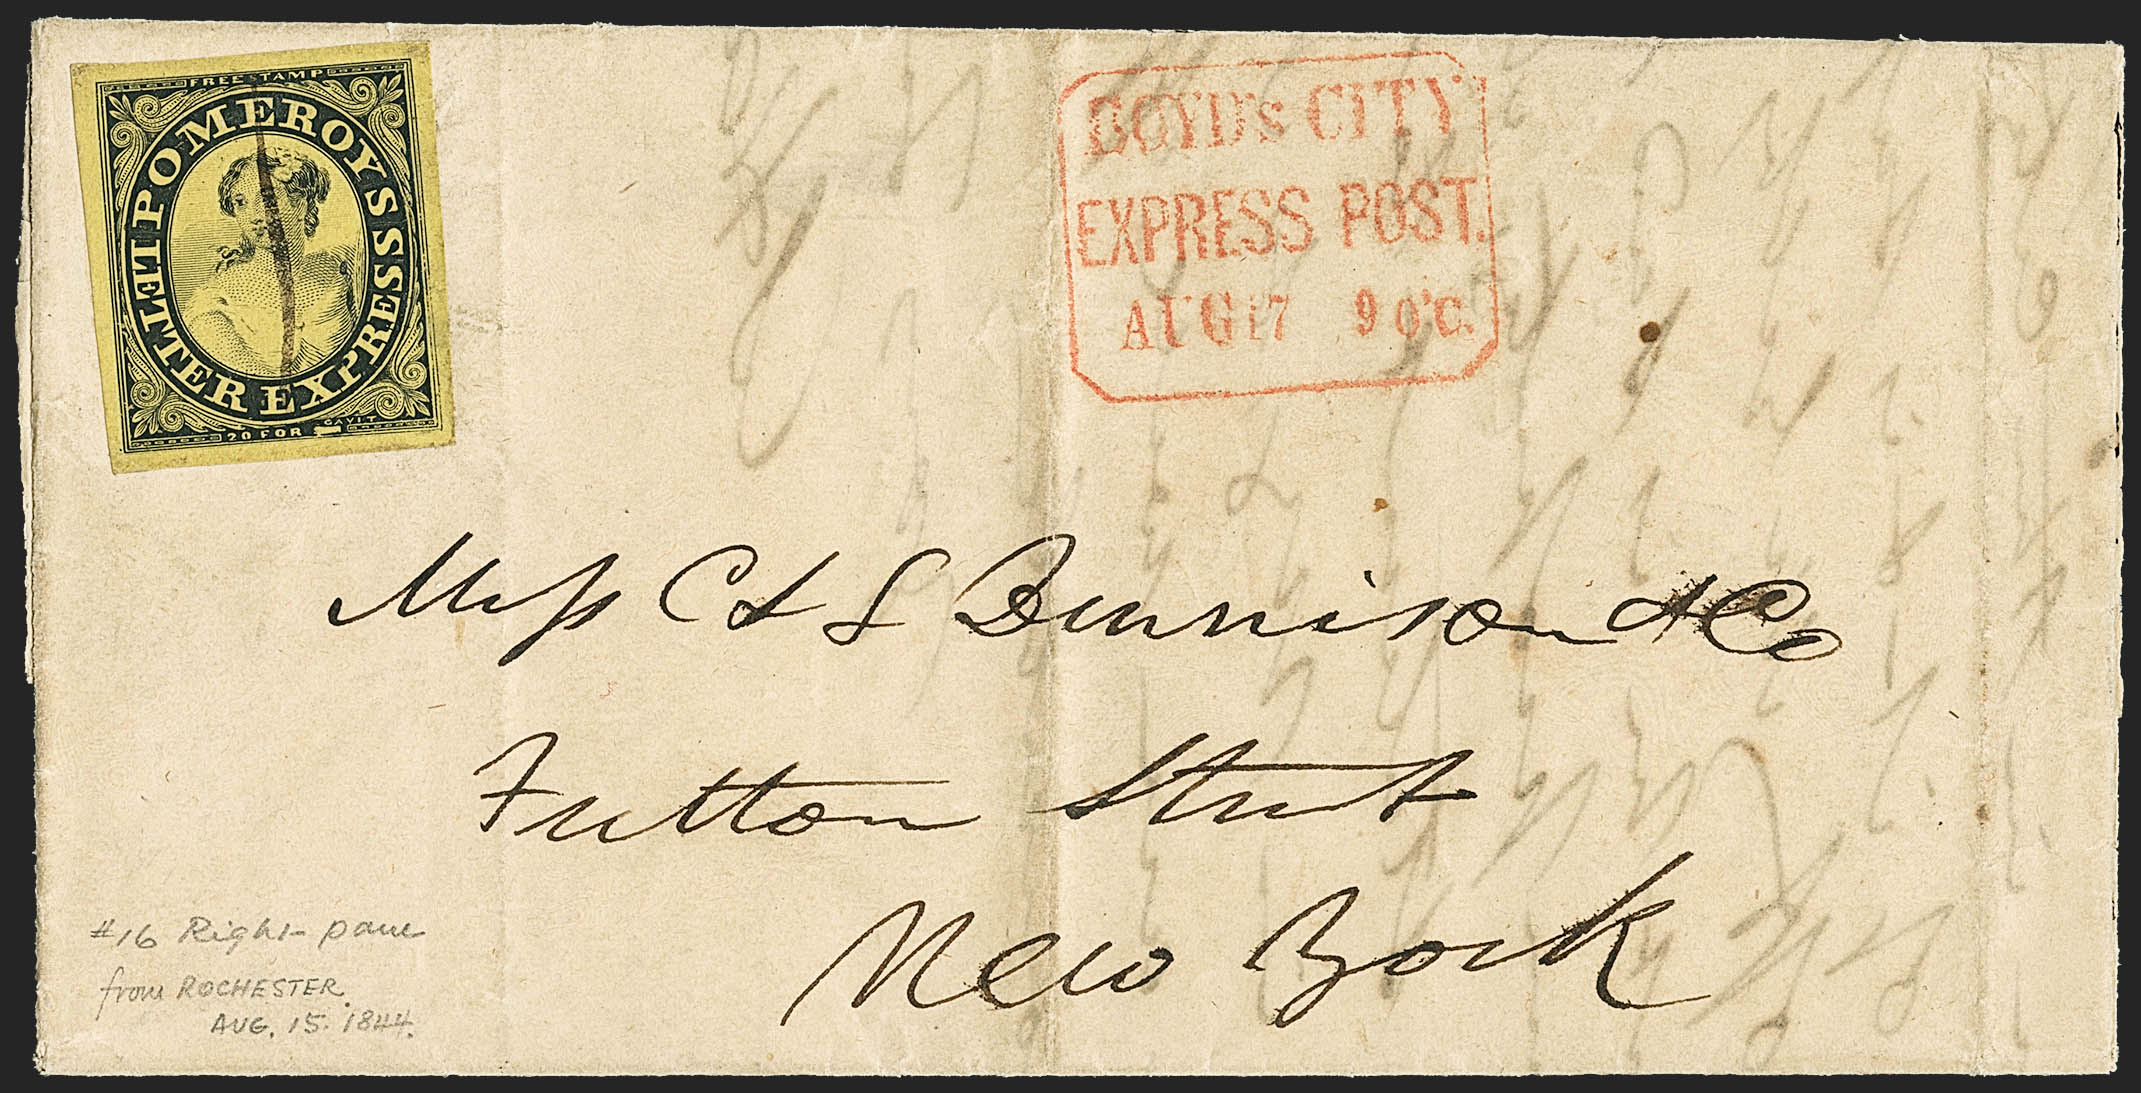 FREE STAMP
POMEROYS
LETTER EXPRESS
20 FOR 1
GAVIT
BOYD's CITY
EXPRESS POST.
AUG 17 9 O'C.
Mess C & S Dennison & Co
Fulton Street
New York
#16 Right pane
from ROCHESTER
AUG. 15. 1844.